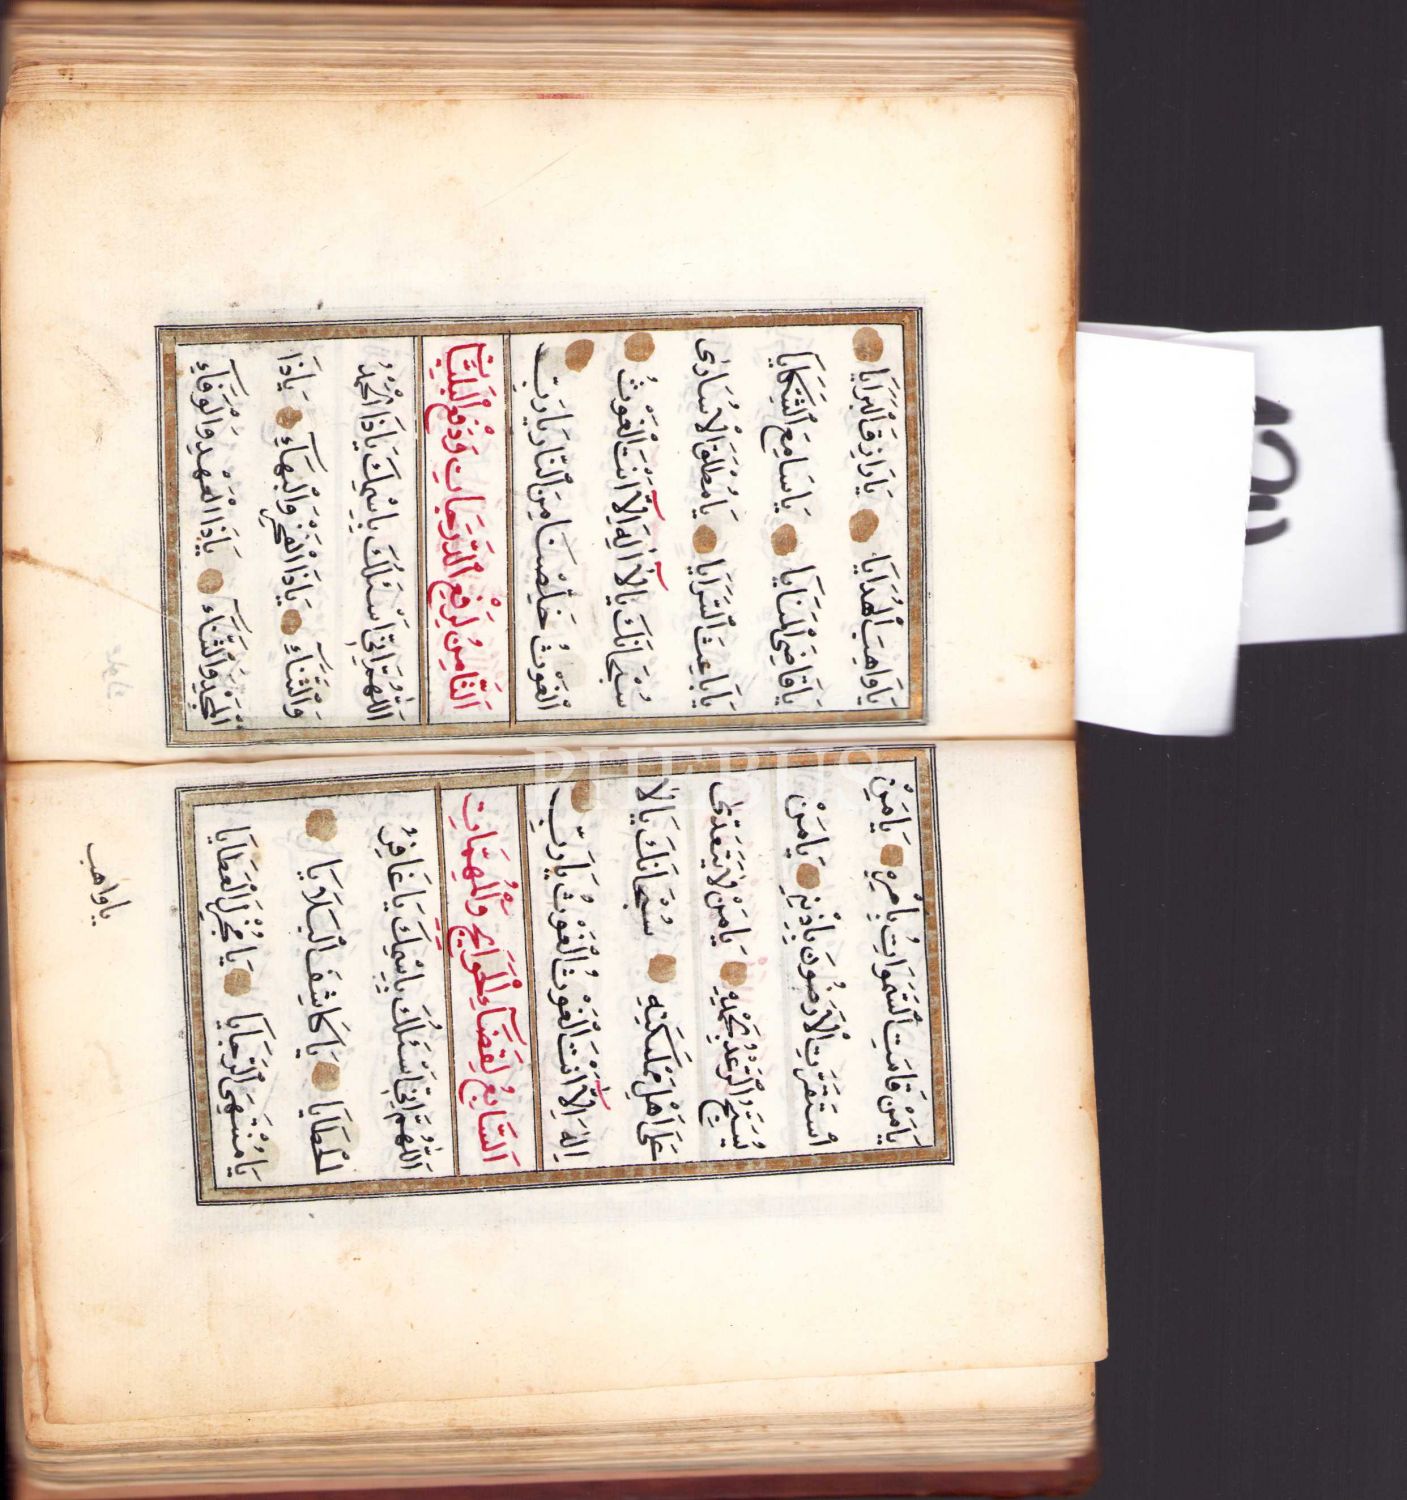 يَا مَنْ قَامَتِ السَّمَوَاتُ بِاَمْرِهِ يَا مَنِ
اسْتَقَرَّتِ الْاَرَضُونَ بِاِذْنِهِ يَا مَنْ
يُسَبِّحُ الرَّعْدُ بِحَمْدِهِ يَا مَنْ لَا يَتَعَدّٰى
عَلٰى اَهْلِ مَمْلَكَتِهِ سُبْحَانَكَ يَا لَا
اِلٰهَ اِلَّا اَنْتَ الْغَوْثُ الْغَوْثُ يَا رَبِّ
اَلسَّابِعُ لِقَضَاءِ الْحَوَايِجِ وَالْمُهِمَّاتِ
اَللّٰهُمَّ اِنِّى اَسْئَلُكَ بِاسْمِكَ يَا غَافِرُ
الْخَطَايَا يَا كَاشِفَ الْبَلَايَا
يَا مُنْتَهَى الرَّجَايَا يَا مُجْزِلَ الْعَطَايَا
يا واهب
يَا وَاهِبَ الْهَدَايَا يَا رَازِقَ الْبَرَايَا
يَا قَاضِىَ الْمَنَايَا يَا سَامِعَ الشَّكَايَا
يَا بَاعِثَ السَّرَايَا يَا مُطْلِقَ الْاُسَارٰى
سُبْحَانَكَ يَا لَا اِلٰهَ اِلَّا اَنْتَ الْغَوْثُ
الْغَوْثُ خَلِّصْنَا مِنَ النَّارِ يَا رَبِّ
اَلثَّامِنُ لِرَفْعِ الدَّرَجَاتِ وَدَفْعِ الْبَلِيَّاتِ
اَللّٰهُمَّ اِنِّى اَسْئَلُكَ بِاسْمِكَ يَا ذَا الْحَمْدِ
وَالثَّنَاءِ يَا ذَا الْفَخْرِ وَالْبَهَاءِ يَا ذَا
الْمَجْدِ وَالسَّنَاءِ يَا ذَا الْعَهْدِ وَالْوَفَاءِ
PHEBUS